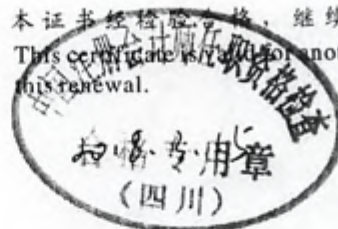 本证书经检验合格，继续
This certificate is valid for anot
this renewal.
中国注册会计师任职资格检查
合格专用章
（四川）